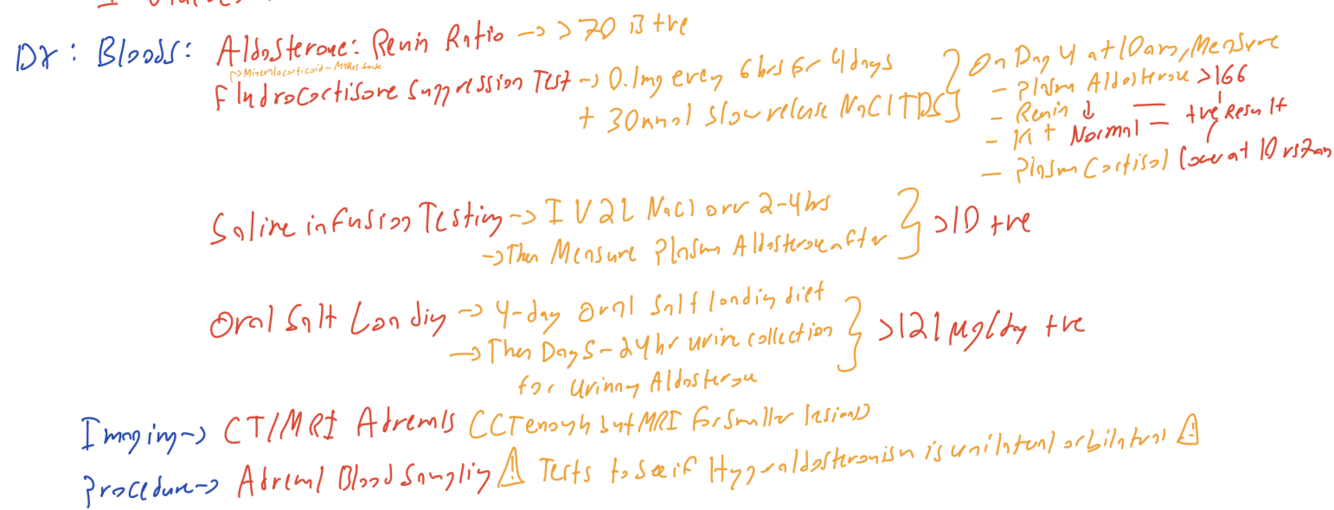 Dx : Bloods : Aldosterone : Renin Ratio -> > 70 is +ve
Mineralocorticoid
Fludrocortisone Suppression Test -> 0.1mg every 6 hrs for 4 days
+ 30mmol Slow release NaCl TDS
On Day 4 at 10am, Measure
- Plasma Aldosterone > 166
- Renin ↓
- K+ Normal = +ve Result
- Plasma Cortisol Lower at 10 vs 7am
Saline infusion Testing -> IV 2L NaCl over 2-4hrs
-> Then Measure Plasma Aldosterone after } >10 +ve
Oral Salt Loading -> 4-day Oral Salt loading diet
-> Then Day 5 - 24hr urine collection } >121 µg/day +ve
for Urinary Aldosterone
Imaging -> CT/MRI Adrenals (CT enough but MRI for smaller lesions)
Procedure -> Adrenal Blood Sampling ⚠ Tests to see if Hyperaldosteronism is unilateral or bilateral ⚠